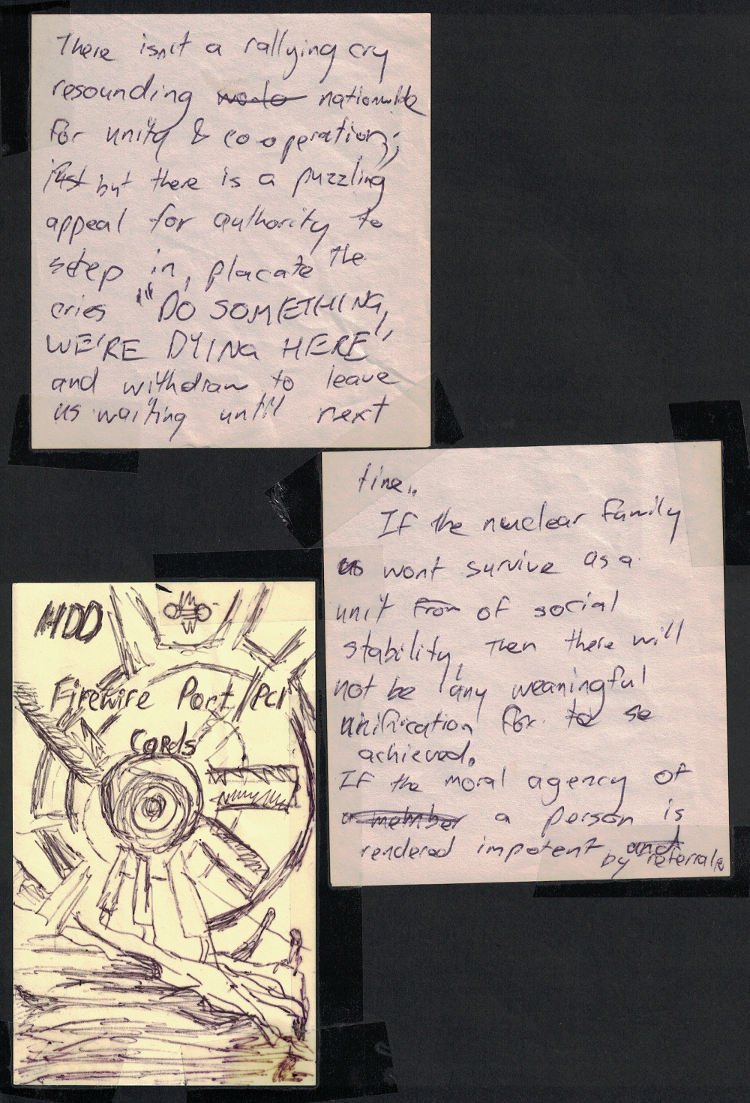 There isn't a rallying cry
resounding nationwide
for unity & cooperation;
just but there is a puzzling
appeal for authority to
step in, placate the
cries "DO SOMETHING,
WE'RE DYING HERE"
and withdraw to leave
us waiting until next
time..
If the nuclear family
wont survive as a
unit from of social
stability, then there will
not be any meaningful
unification for to be
achieved.
If the moral agency of
a member a person is
rendered impotent and
by referrals
HDD
Firewire Port/PCI
Cards